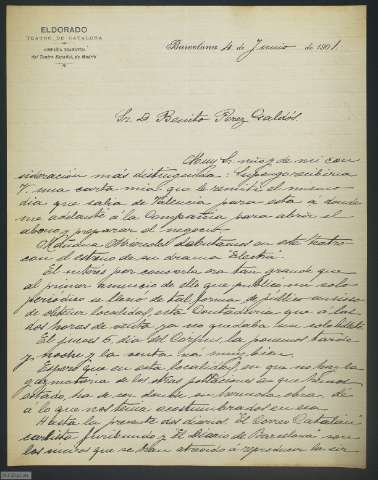 ELDORADO
TEATRO DE CATALUÑA
COMPAÑIA DRAMATICA
del Teatro Español, de Madrid
Barcelona 4 de Junio de 1901.
Sr. D. Benito Perez Galdós.
Muy Sr. mio y de mi con
sideracion más distinguida: Supongo recibiria
V. una carta mia que le remiti el mismo
dia que salia de Valencia para esta a donde
me adelanté á la Compañia para abrir el
abono y preparar el negocio.
Mañana Miercoles debutamos en este teatro
con el estreno de su drama Electra.
El interes por conocerla era tan grande que
al primer anuncio de ello que publico un solo
periódico se llenó de tal forma de público ansioso
de obtener localidad, esta Contaduria que á las
dos horas de venta ya no quedaba un solo billete.
El jueves 6, dia del Corpus, la ponemos tarde
y noche y la venta vá muy bien.
Espero que en esta localidad, en que no hay la
de las otras poblaciones en que hemos
estado, ha de ser donde su hermosa obra, dé
á lo que nos tenia acostumbrados en esa.
Hasta la presente dos diarios, El Correo Catalán
carlista furibundo y El Diario de Barcelona son
los unicos que se han atrevido á reproducir la cir